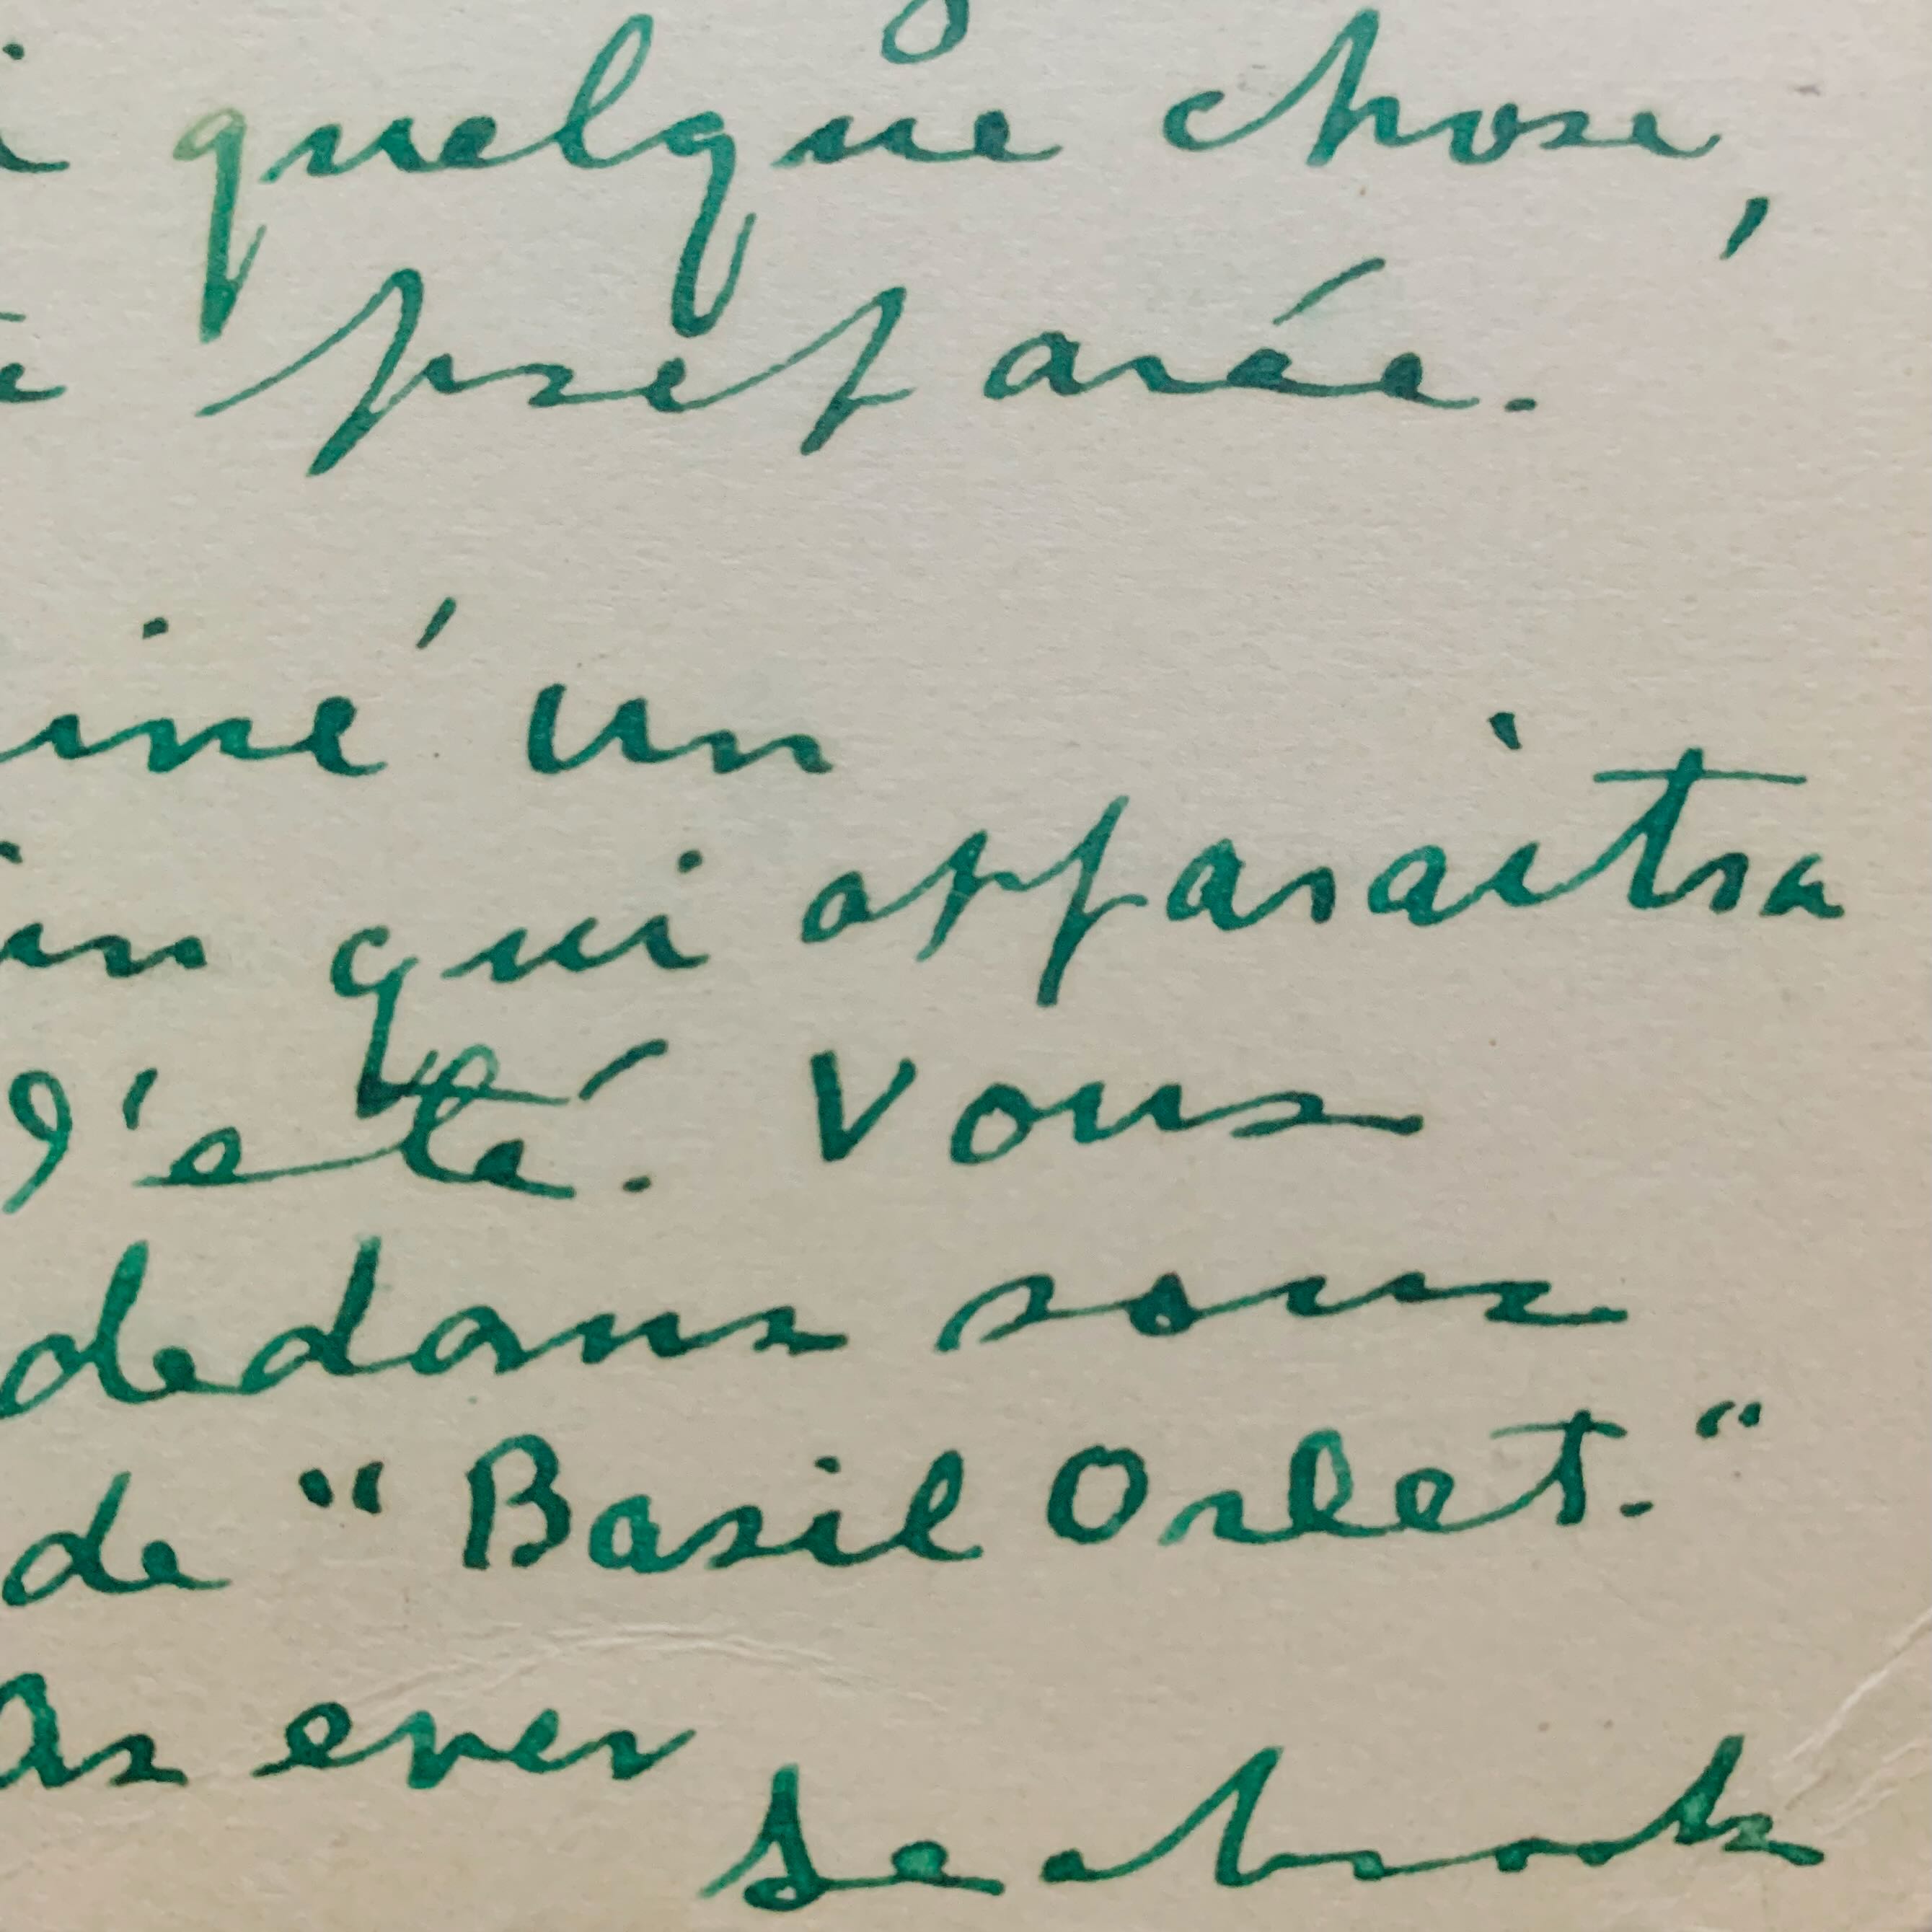 quelque chose,
preparée.
iné un
in qui apparaitra
l'eté. Vous
dedans sous
de "Basil Orlet."
As ever
Seabrook